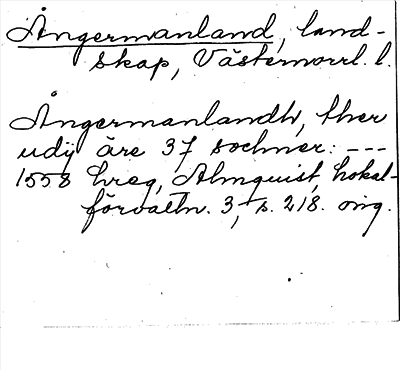 Ångermanland, land-
skap, Västernorrl. l.
Ångermanlandh, ther
udij äre 37 sochner: ---
1558 hreg, Almquist, Lokal-
förvaltn. 3, s. 218. orig.